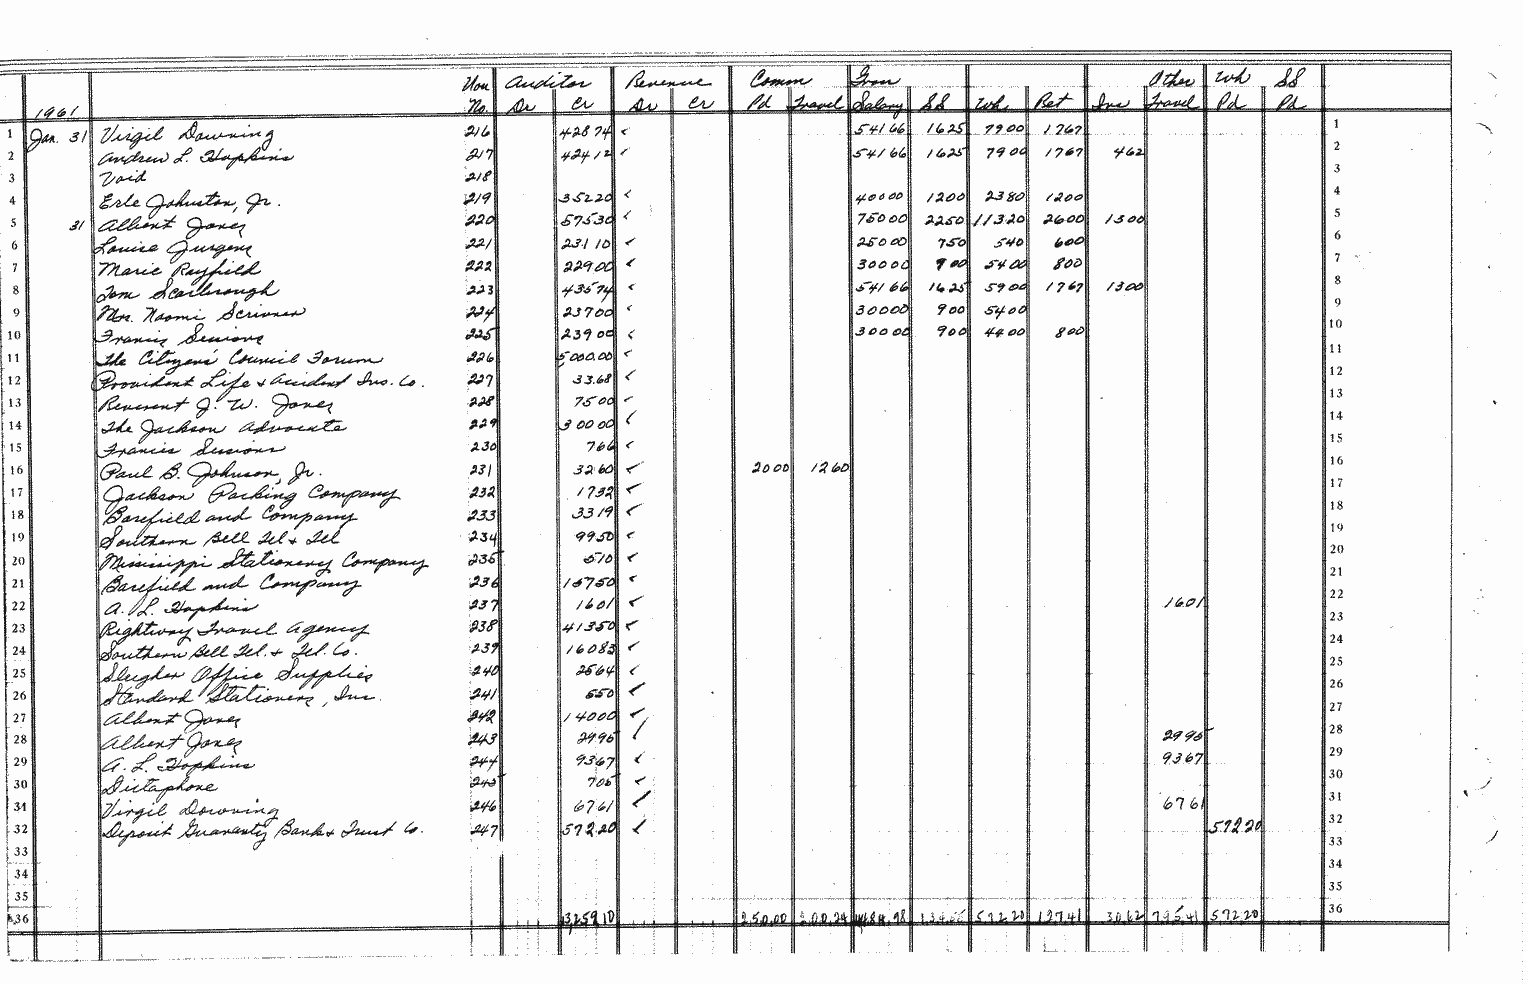 Vou Auditor Revenue Comm Gross Other Wh SS
1961 No. Dr Cr Dr Cr Pd Travel Salary SS Wh. Ret Ins Travel Pd Pd
1 Jan. 31 Virgil Downing 216 428 74 ✓ 541 66 16 25 79 00 17 67 1
2 Andrew L. Hopkins 217 424 12 ✓ 541 66 16 25 79 00 17 67 4 62 2
3 Void 218 3
4 Erle Johnston, Jr. 219 352 20 ✓ 400 00 12 00 23 80 12 00 4
5 31 Albert Jones 220 575 30 ✓ 750 00 22 50 113 20 26 00 13 00 5
6 Louise Jurgens 221 231 10 ✓ 250 00 7 50 5 40 6 00 6
7 Marie Rayfield 222 229 00 ✓ 300 00 9 00 54 00 8 00 7
8 Tom Scarbrough 223 435 74 ✓ 541 66 16 25 59 00 17 67 13 00 8
9 Mrs. Naomi Scrivner 224 237 00 ✓ 300 00 9 00 54 00 9
10 Francis Sessions 225 239 00 ✓ 300 00 9 00 44 00 8 00 10
11 The Citizens' Council Forum 226 5,000.00 ✓ 11
12 Provident Life & Accident Ins. Co. 227 33.68 ✓ 12
13 Reverent J. W. Jones 228 75 00 ✓ 13
14 The Jackson Advocate 229 300 00 ✓ 14
15 Francis Sessions 230 7 66 ✓ 15
16 Paul B. Johnson, Jr. 231 32 60 ✓ 20 00 12 60 16
17 Jackson Packing Company 232 17 32 ✓ 17
18 Barefield and Company 233 33 19 ✓ 18
19 Southern Bell Tel & Tel 234 99 50 ✓ 19
20 Mississippi Stationery Company 235 5 10 ✓ 20
21 Barefield and Company 236 157 50 ✓ 21
22 A. L. Hopkins 237 16 01 ✓ 16 01 22
23 Rightway Travel Agency 238 413 50 ✓ 23
24 Southern Bell Tel. & Tel. Co. 239 160 83 ✓ 24
25 Sleigher Office Supplies 240 25 64 ✓ 25
26 Standard Stationers, Inc. 241 6 50 ✓ 26
27 Albert Jones 242 140 00 ✓ 27
28 Albert Jones 243 29 95 ✓ 29 95 28
29 A. L. Hopkins 244 93 67 ✓ 93 67 29
30 Dictaphone 245 7 05 ✓ 30
31 Virgil Downing 246 67 61 ✓ 67 61 31
32 Deposit Guaranty Bank & Trust Co. 247 572 20 ✓ 572 20 32
33 33
34 34
35 35
36 250.00 572 20 127.41 30.62 795.41 572 20 36